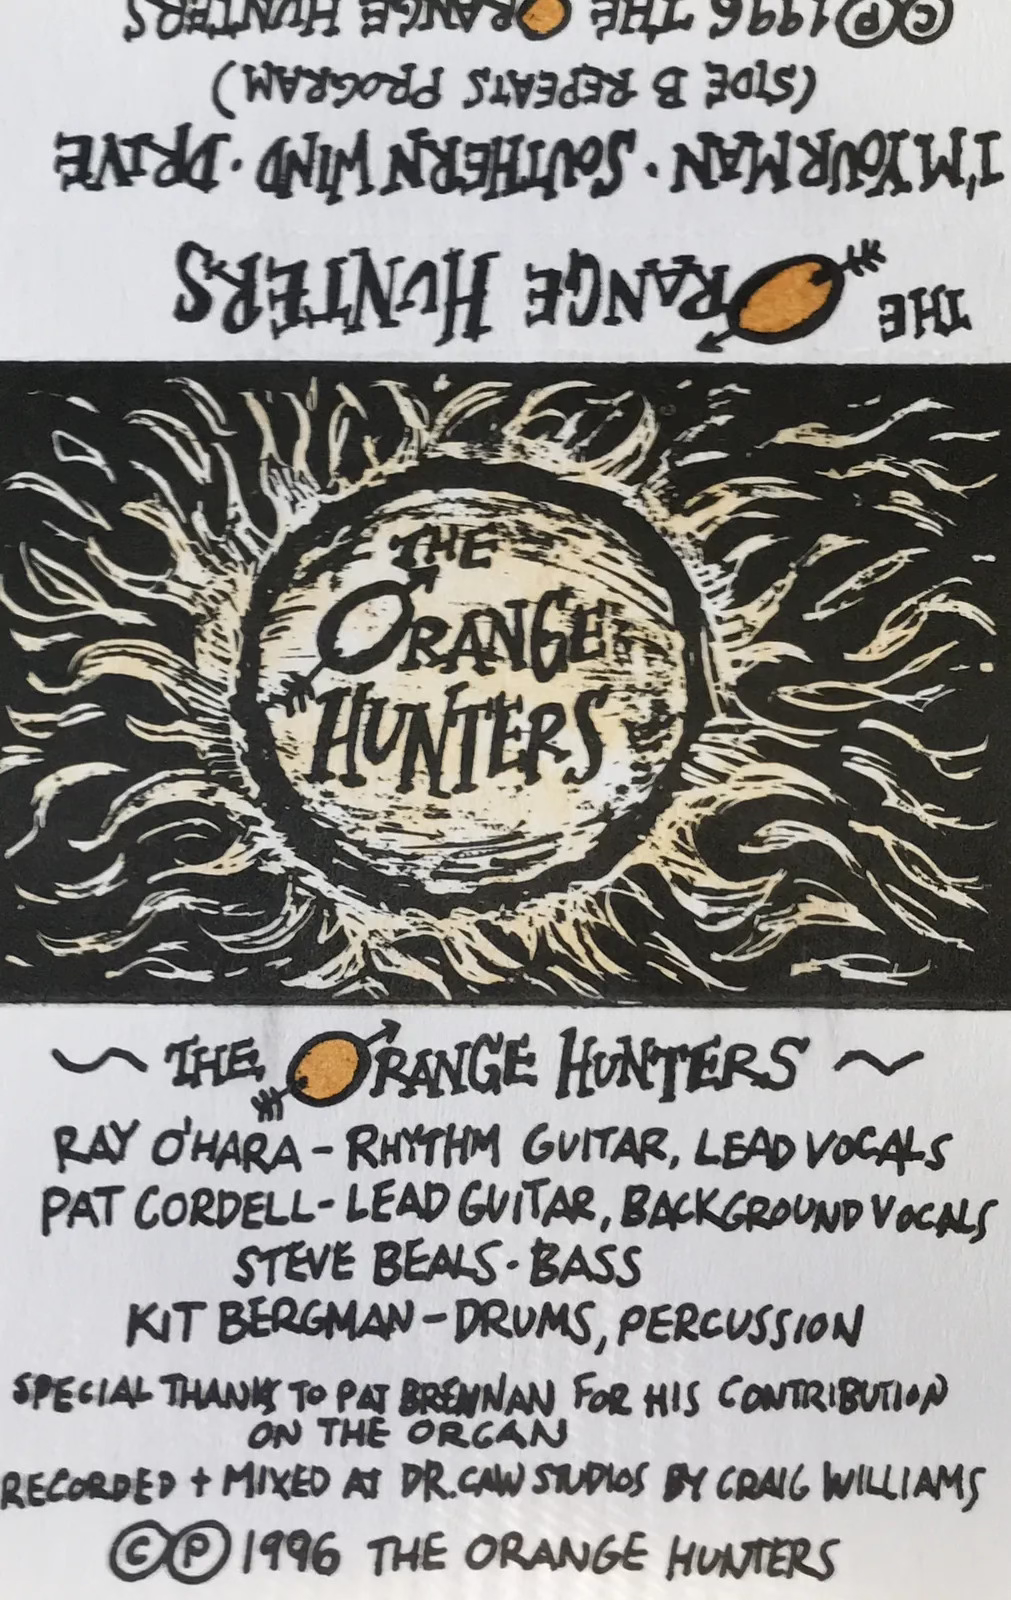 THE ORANGE HUNTERS
I'M YOUR MAN · SOUTHERN WIND · DRIVE
(SIDE B REPEATS PROGRAM)
©℗1996 THE ORANGE HUNTERS
THE
ORANGE
HUNTERS
~ THE ORANGE HUNTERS ~
RAY O'HARA – RHYTHM GUITAR, LEAD VOCALS
PAT CORDELL - LEAD GUITAR, BACKGROUND VOCALS
STEVE BEALS · BASS
KIT BERGMAN – DRUMS, PERCUSSION
SPECIAL THANKS TO PAT BRENNAN FOR HIS CONTRIBUTION
ON THE ORGAN
RECORDED + MIXED AT DR. CAW STUDIOS BY CRAIG WILLIAMS
©℗1996 THE ORANGE HUNTERS